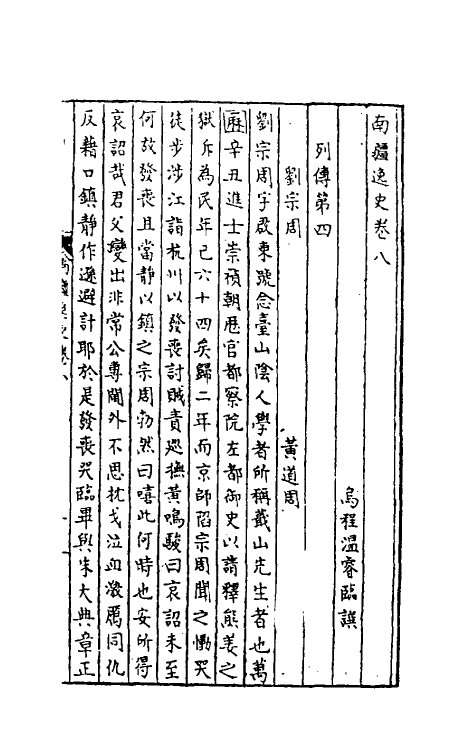 南疆逸史卷八
烏程溫睿臨譔
列傳第四
劉宗周　黃道周
劉宗周字啟東號念臺山陰人學者所稱蕺山先生者也萬
曆辛丑進士崇禎朝歷官都察院左都御史以請釋熊姜之
獄斥為民年已六十四矣歸二年而京師陷宗周聞之慟哭
徒步涉江詣杭州以發喪討賊責巡撫黃鳴駿曰哀詔未至
何故發喪且當靜以鎮之宗周勃然曰嘻此何時也安所得
哀詔哉君父變出非常公專閫外不思枕戈泣血激厲同仇
反藉口鎮靜作遜避計耶於是發喪哭臨畢與朱大典章正
南疆逸史卷八